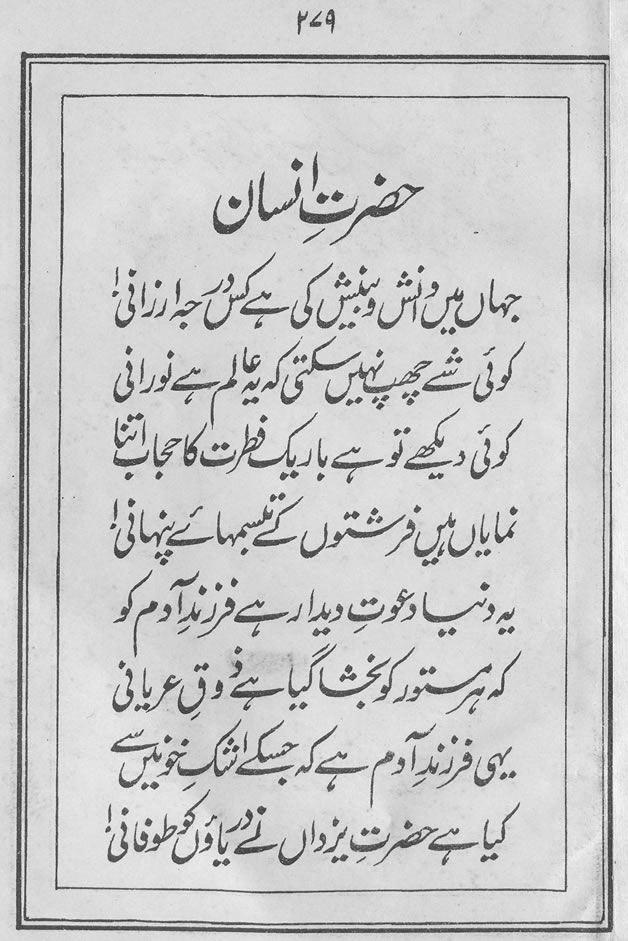 ۲۷۹
حضرتِ انسان
جہاں میں دانش و بینش کی ہے کس درجہ ارزانی!
کوئی شے چھپ نہیں سکتی کہ یہ عالم ہے نورانی
کوئی دیکھے تو ہے باریک فطرت کا حجاب اتنا
نمایاں ہیں فرشتوں کے تبسمہائے پنہانی!
یہ دنیا دعوتِ دیدار ہے فرزندِ آدم کو
کہ ہر مستور کو بخشا گیا ہے ذوقِ عریانی
یہی فرزندِ آدم ہے کہ جسکے اشکِ خونیں سے
کیا ہے حضرتِ یزداں نے دریاؤں کو طوفانی!